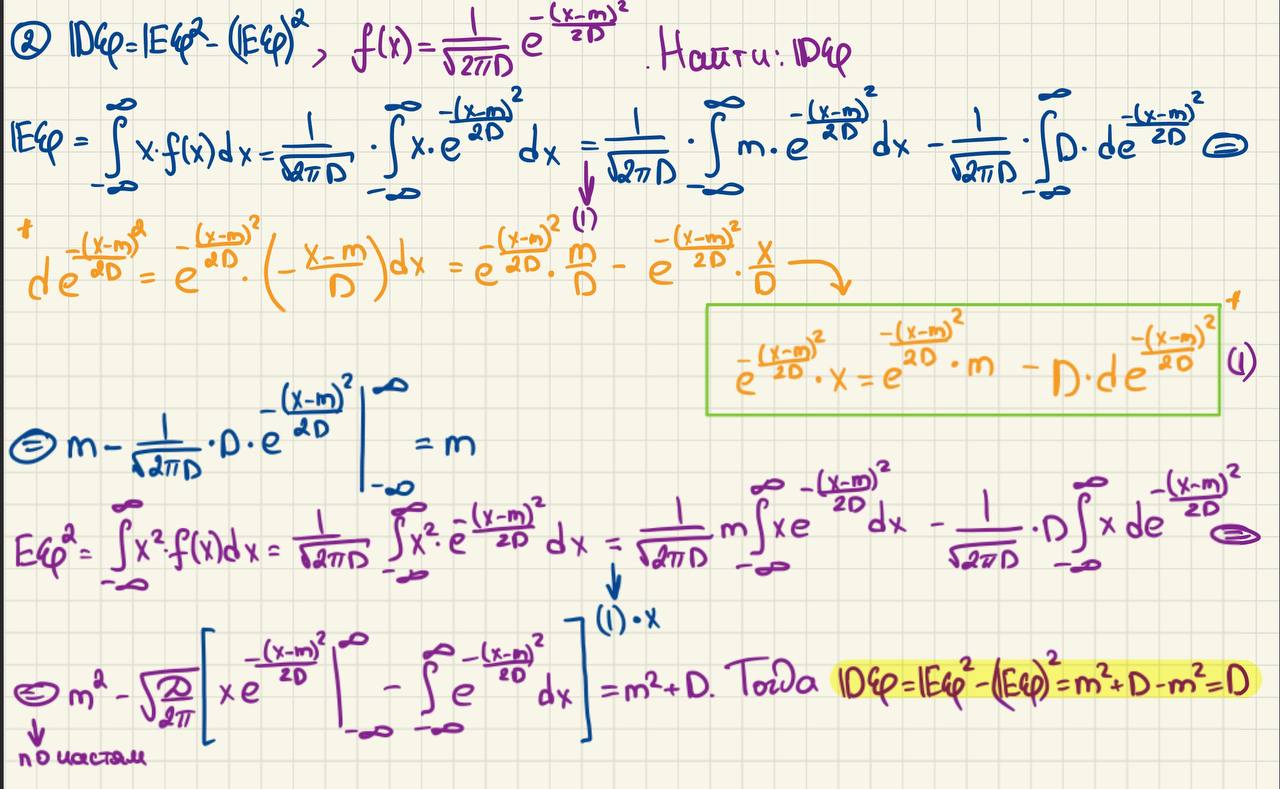 ② 𝔻ξφ = 𝔼ξφ² - (𝔼ξφ)², f(x) = 1/√(2πD) e^(-(x-m)²/2D). Найти: 𝔻ξφ
𝔼ξφ = ∫_{-∞}^{∞} x·f(x)dx = 1/√(2πD) · ∫_{-∞}^{∞} x·e^(-(x-m)²/2D) dx = 1/√(2πD) · ∫_{-∞}^{∞} m·e^(-(x-m)²/2D) dx - 1/√(2πD) · ∫_{-∞}^{∞} D·de^(-(x-m)²/2D) ⊜
↓
(1)
* de^(-(x-m)²/2D) = e^(-(x-m)²/2D) · (-(x-m)/D) dx = e^(-(x-m)²/2D) · m/D - e^(-(x-m)²/2D) · x/D
e^(-(x-m)²/2D) · x = e^(-(x-m)²/2D) · m - D·de^(-(x-m)²/2D) * (1)
⊜ m - 1/√(2πD) · D · e^(-(x-m)²/2D) |_{-∞}^{∞} = m
Eξφ² = ∫_{-∞}^{∞} x²·f(x)dx = 1/√(2πD) ∫_{-∞}^{∞} x²·e^(-(x-m)²/2D) dx = 1/√(2πD) m ∫_{-∞}^{∞} xe^(-(x-m)²/2D) dx - 1/√(2πD) · D ∫_{-∞}^{∞} x de^(-(x-m)²/2D) ⊜
↓
(1)·x
⊜ m² - √(D/2π) [xe^(-(x-m)²/2D) |_{-∞}^{∞} - ∫_{-∞}^{∞} e^(-(x-m)²/2D) dx] = m² + D. Тогда 𝔻ξφ = 𝔼ξφ² - (𝔼ξφ)² = m² + D - m² = D
↓
по частям